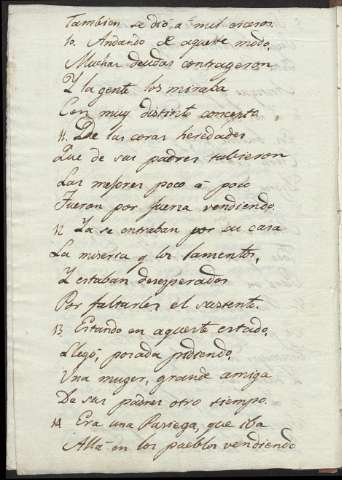 Tambien se dió, a mil excesos.
10. Andando de aqueste modo,
Muchas deudas contrageron
Y la gente los miraba
Con muy distinto concepto.
11. De las cosas heredades
Que de sus padres tubieron
Las mejores poco á poco
Fueron por fuerza vendiendo.
12. Ya se entraban por su casa
La miseria y los lamentos,
Y estaban desesperados
Por faltarles el sustento.
13. Estando en aqueste estado,
Llegó, posada pidiendo,
Una muger, grande amiga
De sus padres otro tiempo.
14. Era una Pasiega, que iba
Allá en los pueblos vendiendo